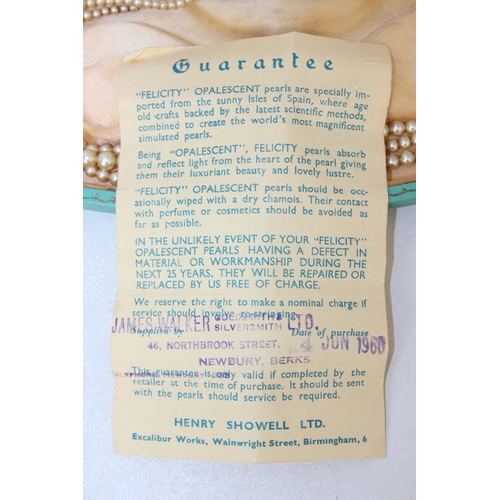 Guarantee
"FELICITY" OPALESCENT pearls are specially im-
ported from the sunny Isles of Spain, where age
old crafts backed by the latest scientific methods,
combined to create the world's most magnificent
simulated pearls.
Being "OPALESCENT", FELICITY pearls absorb
and reflect light from the heart of the pearl giving
them their luxuriant beauty and lovely lustre.
"FELICITY" OPALESCENT pearls should be occ-
asionally wiped with a dry chamois. Their contact
with perfume or cosmetics should be avoided as
far as possible.
IN THE UNLIKELY EVENT OF YOUR "FELICITY"
OPALESCENT PEARLS HAVING A DEFECT IN
MATERIAL OR WORKMANSHIP DURING THE
NEXT 25 YEARS, THEY WILL BE REPAIRED OR
REPLACED BY US FREE OF CHARGE.
We reserve the right to make a nominal charge if
service should involve re-stringing.
JAMES WALKER GOLDSMITH & SILVERSMITH LTD.
Supplied by Date of purchase
46, NORTHBROOK STREET, 4 JUN 1960
NEWBURY, BERKS.
This guarantee is only valid if completed by the
retailer at the time of purchase. It should be sent
with the pearls should service be required.
HENRY SHOWELL LTD.
Excalibur Works, Wainwright Street, Birmingham, 6